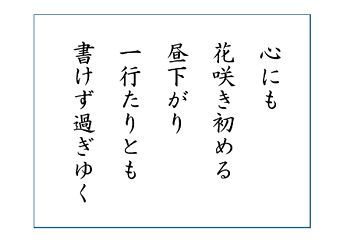 心にも
花咲き初める
昼下がり
一行たりとも
書けず過ぎゆく